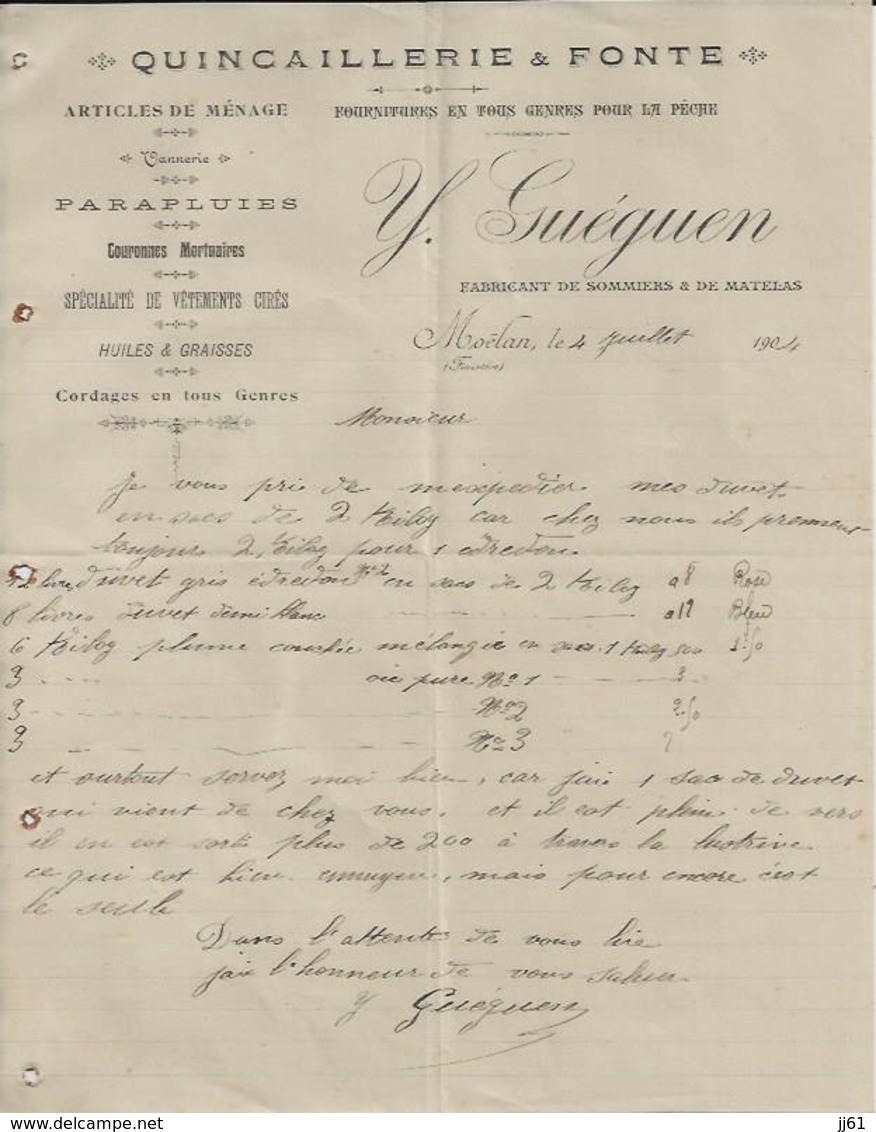 QUINCAILLERIE & FONTE
ARTICLES DE MÉNAGE
Vannerie
PARAPLUIES
Couronnes Mortuaires
SPÉCIALITÉ DE VÊTEMENTS CIRÉS
HUILES & GRAISSES
Cordages en tous Genres
FOURNITURES EN TOUS GENRES POUR LA PÊCHE
Y. Guéguen
FABRICANT DE SOMMIERS & DE MATELAS
Moëlan, le 4 Juillet 1904
(Finistère)
Monsieur
Je vous pri de mexpedier mes duvet
en sacs de 2 Kilog car chez nous ils prennent
toujours 2 Kilog pour 1 édredon
12 livres duvet gris édredon No 2 en sacs de 2 Kilog a 8 Rose
8 livres duvet demi blanc a 12 Bleu
6 Kilog plume couchée mélangée en sacs 1 Kilog 500 1.50
3 oie pure No 1 3
3 No 2 2.50
3 No 3 2
et surtout servez moi bien, car jaie 1 sac de duvet
qui vient de chez vous, et il est plein de vers
il en est sorti plus de 200 à travers la lustrine
ce qui est bien ennuyeu, mais pour encore c'est
le seule
Dans l'attente de vous lire
jaie l'honneur de vous saluer
Y Guéguen
jj61